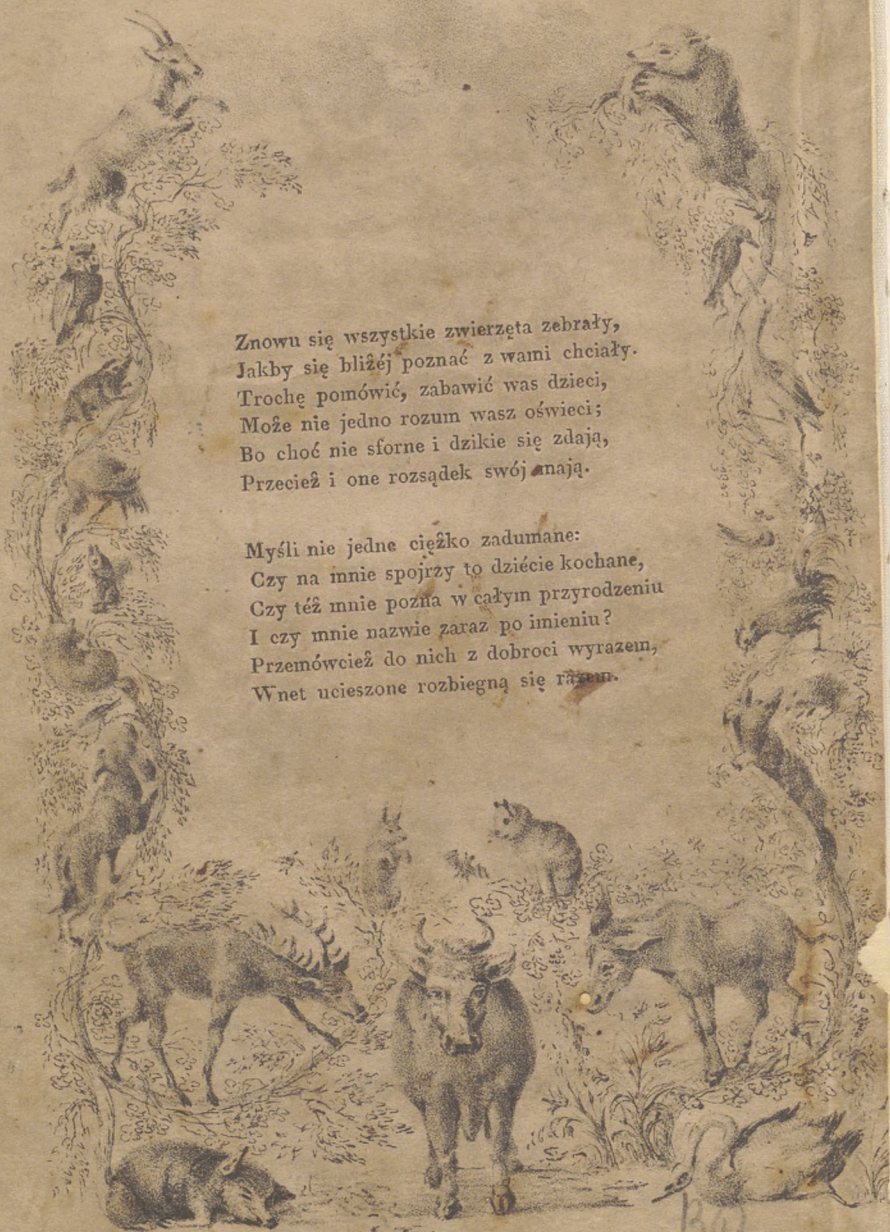 Znowu się wszystkie zwierzęta zebrały,
Jakby się bliżéj poznać z wami chciały.
Trochę pomówić, zabawić was dzieci,
Może nie jedno rozum wasz oświeci;
Bo choć nie sforne i dzikie się zdają,
Przecież i one rozsądek swój znają.
Myśli nie jedne ciężko zadumane:
Czy na mnie spojrzy to dziécie kochane,
Czy téż mnie pozna w całym przyrodzeniu
I czy mnie nazwie zaraz po imieniu?
Przemówcież do nich z dobroci wyrazem,
Wnet ucieszone rozbiegną się razem.